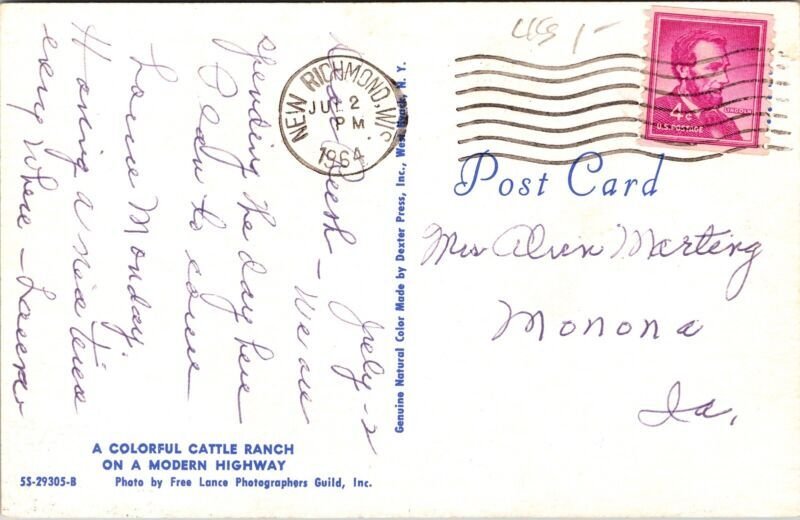 July - 2
We are
spending the day here
Plan to come
home Monday.
Having a nice time
every where -
NEW RICHMOND, WIS
JUL 2
PM
1964
4¢
LINCOLN
U.S. POSTAGE
Post Card
Mrs Alvin Marting
Monona
Ia.
Genuine Natural Color Made by Dexter Press, Inc., West Nyack, N. Y.
A COLORFUL CATTLE RANCH
ON A MODERN HIGHWAY
5S-29305-B Photo by Free Lance Photographers Guild, Inc.